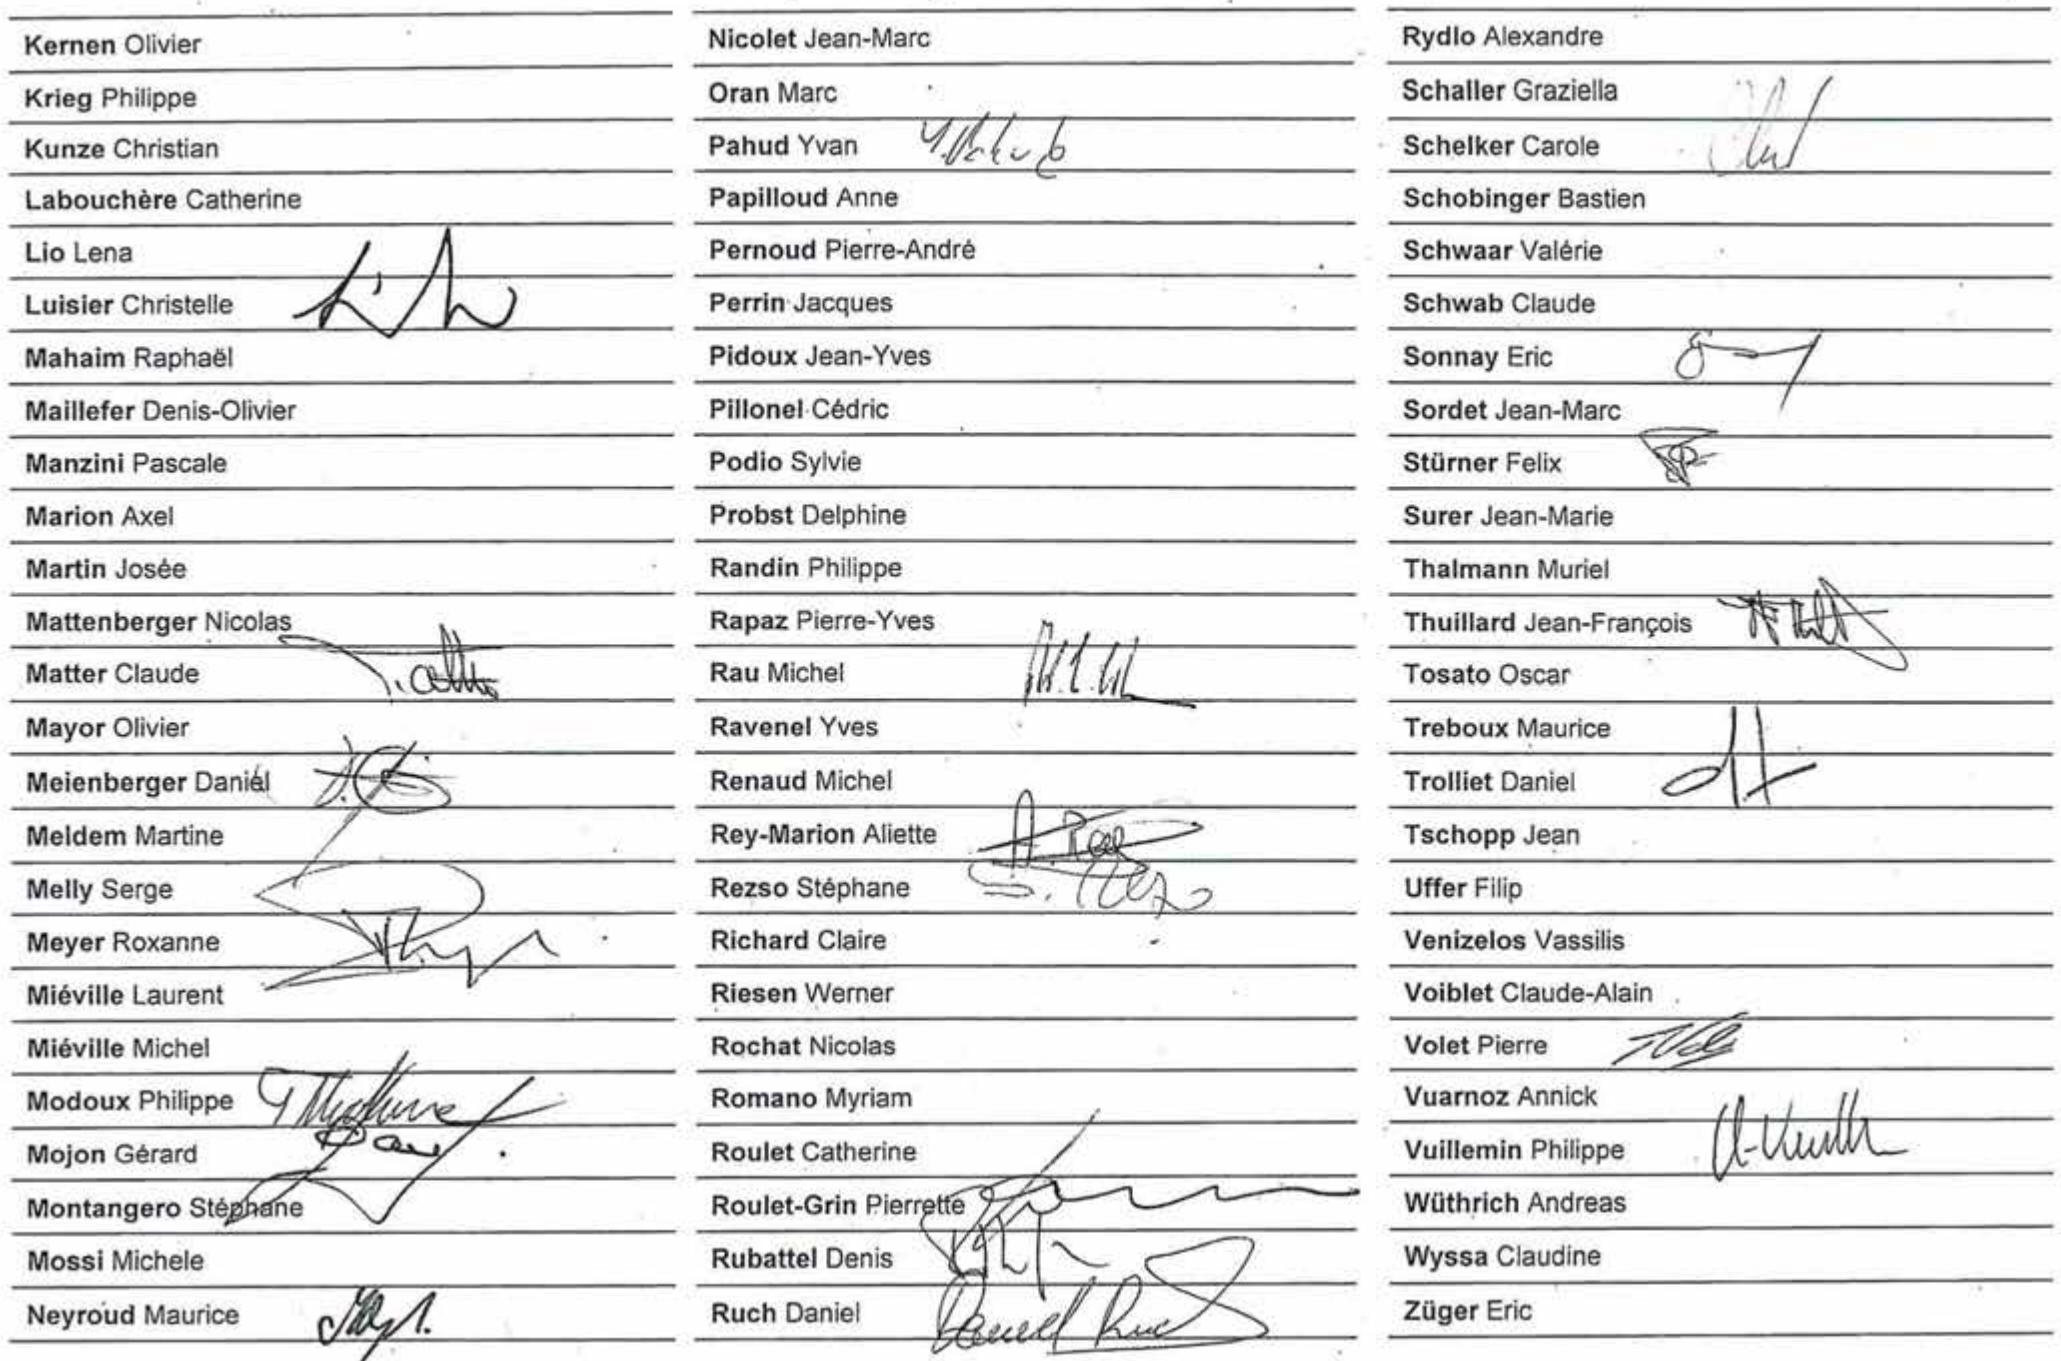 Kernen Olivier
Krieg Philippe
Kunze Christian
Labouchère Catherine
Lio Lena
Luisier Christelle
Mahaim Raphaël
Maillefer Denis-Olivier
Manzini Pascale
Marion Axel
Martin Josée
Mattenberger Nicolas
Matter Claude
Mayor Olivier
Meienberger Daniel
Meldem Martine
Melly Serge
Meyer Roxanne
Miéville Laurent
Miéville Michel
Modoux Philippe
Mojon Gérard
Montangero Stéphane
Mossi Michele
Neyroud Maurice
Nicolet Jean-Marc
Oran Marc
Pahud Yvan Y. Pahud
Papilloud Anne
Pernoud Pierre-André
Perrin Jacques
Pidoux Jean-Yves
Pillonel Cédric
Podio Sylvie
Probst Delphine
Randin Philippe
Rapaz Pierre-Yves
Rau Michel
Ravenel Yves
Renaud Michel
Rey-Marion Aliette A. Rey
Rezso Stéphane S. Rezso
Richard Claire
Riesen Werner
Rochat Nicolas
Romano Myriam
Roulet Catherine
Roulet-Grin Pierrette
Rubattel Denis
Ruch Daniel Daniel Ruch
Rydlo Alexandre
Schaller Graziella
Schelker Carole
Schobinger Bastien
Schwaar Valérie
Schwab Claude
Sonnay Eric
Sordet Jean-Marc
Stürner Felix
Surer Jean-Marie
Thalmann Muriel
Thuillard Jean-François
Tosato Oscar
Treboux Maurice
Trolliet Daniel
Tschopp Jean
Uffer Filip
Venizelos Vassilis
Voiblet Claude-Alain
Volet Pierre
Vuarnoz Annick
Vuillemin Philippe
Wüthrich Andreas
Wyssa Claudine
Züger Eric